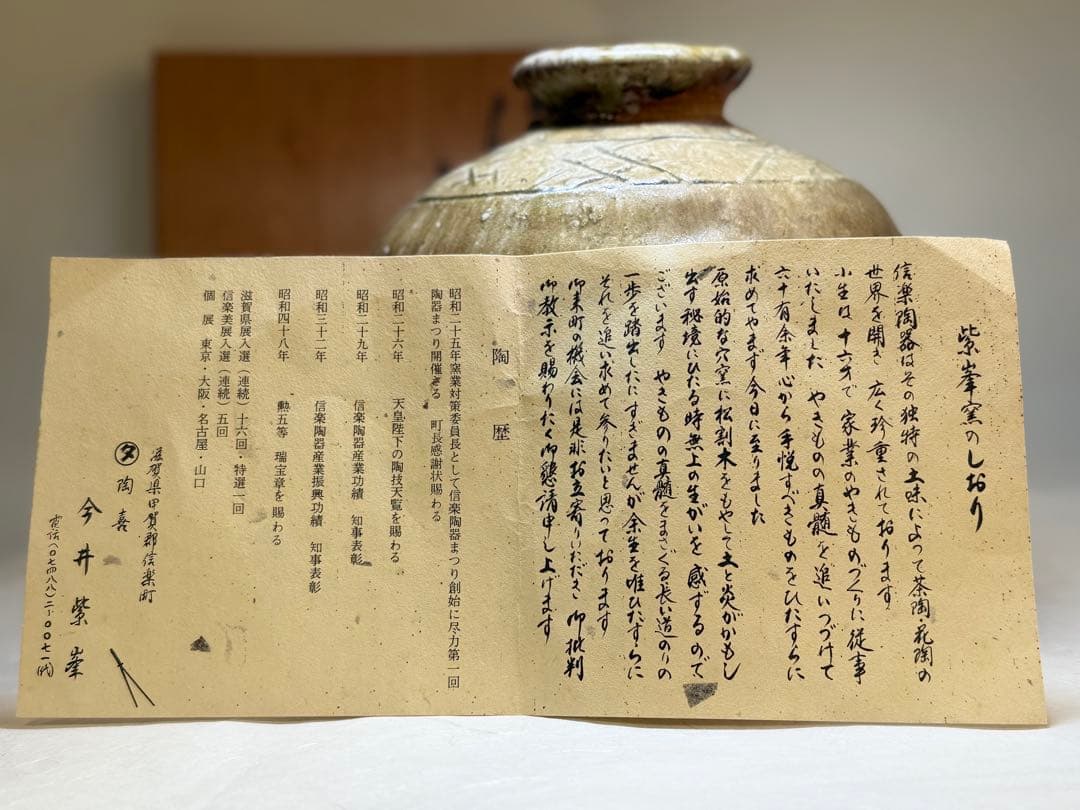 紫峯窯のしおり
信楽陶器はその独特の土味によって茶陶・花陶の
世界を開き 広く珍重されております
小生は 十六才で 家業のやきものづくりに従事
いたしました やきものの真髄を追いつづけて
六十有余年 心から手悦すべきものをひたすらに
求めてやまず今日に至りました
原始的な穴窯に松割木をもやして土と炎がかもし
出す秘境にひたる時無上の生がいを感ずるので
ございます やきものの真髄をまさぐる長い道のりの
一歩を踏出したにすぎませんが余生を唯ひたすらに
それを追い求めて参りたいと思っております
御来町の機会には是非お立寄りいただき 御批判
御教示を賜わりたく御懇請申し上げます
陶歴
昭和二十五年窯業対策委員長として信楽陶器まつり創始に尽力第一回
陶器まつり開催さる 町長感謝状賜わる
昭和二十六年 天皇陛下の陶技天覧を賜わる
昭和二十九年 信楽陶器産業功績 知事表彰
昭和三十二年 信楽陶器産業振興功績 知事表彰
昭和四十八年 勲五等 瑞宝章を賜わる
滋賀県展入選(連続)十六回・特選一回
信楽美展入選(連続)五回
個展 東京・大阪・名古屋・山口
滋賀県甲賀郡信楽町
タ 陶喜
今井紫峯
電伝(〇七四八八)二-〇〇七一(代)